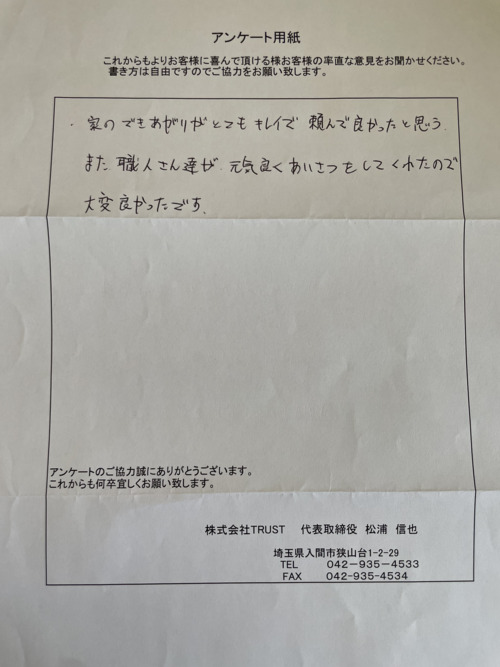 アンケート用紙
これからもよりお客様に喜んで頂ける様お客様の率直な意見をお聞かせください。
書き方は自由ですのでご協力をお願い致します。
・家のできあがりがとてもキレイで 頼んで良かったと思う。
また 職人さん達が 元気良くあいさつをしてくれたので
大変良かったです。
アンケートのご協力誠にありがとうございます。
これからも何卒宜しくお願い致します。
株式会社TRUST 代表取締役 松浦 信也
埼玉県入間市狭山台1-2-29
TEL 042-935-4533
FAX 042-935-4534